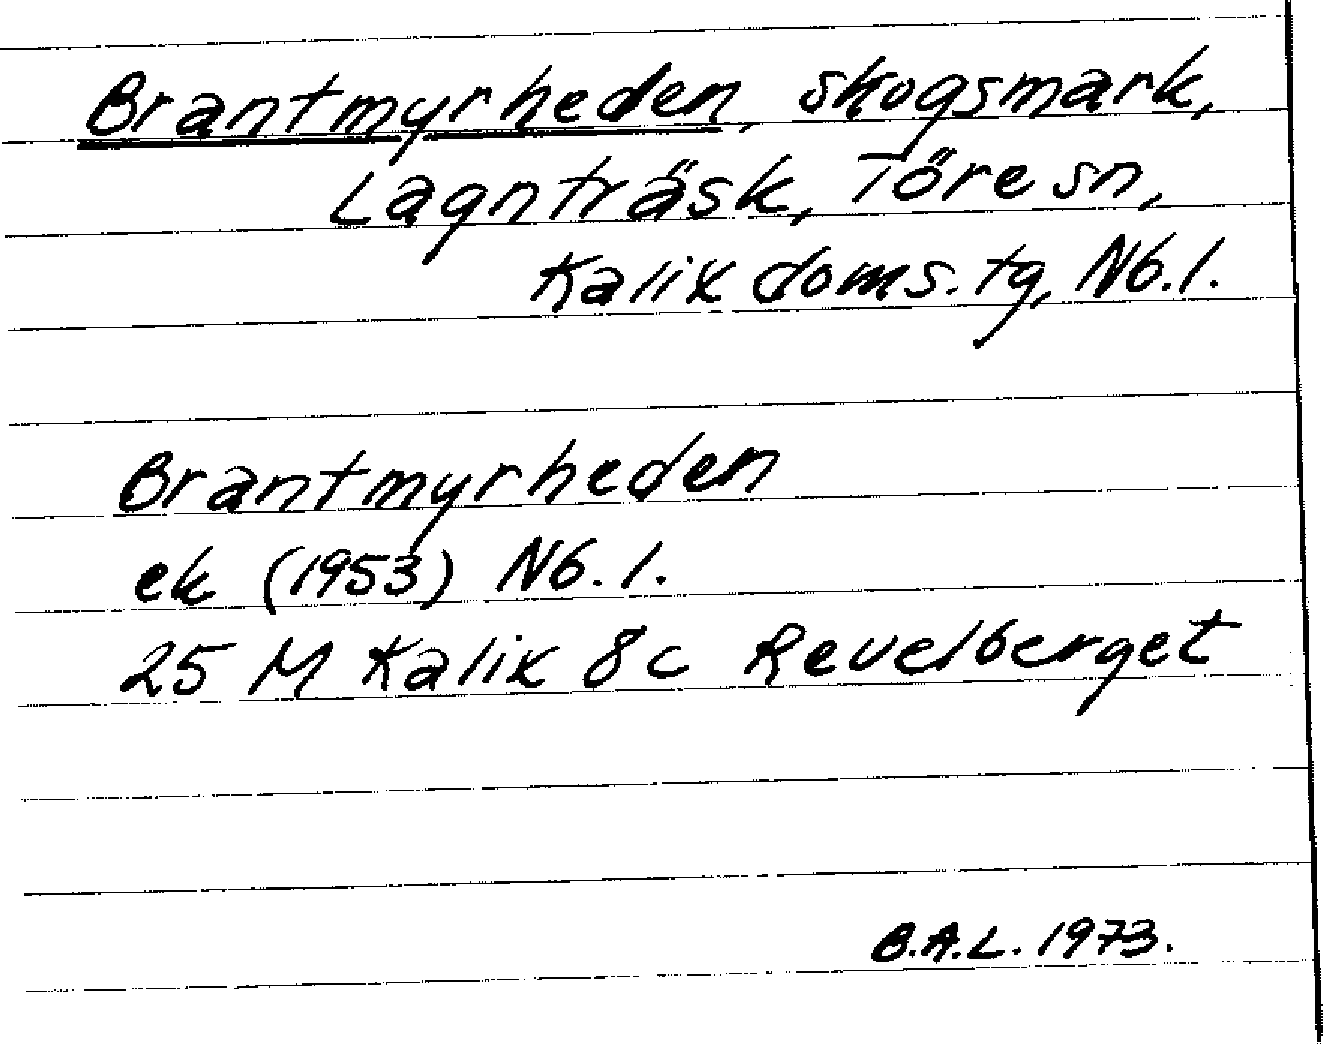 Brantmyrheden, skogsmark,
Lagnträsk, Töre sn,
Kalix doms.tg, Nb.l.
Brantmyrheden
ek (1953) Nb.l.
25 M Kalix 8c Revelberget
B.A.L. 1973.